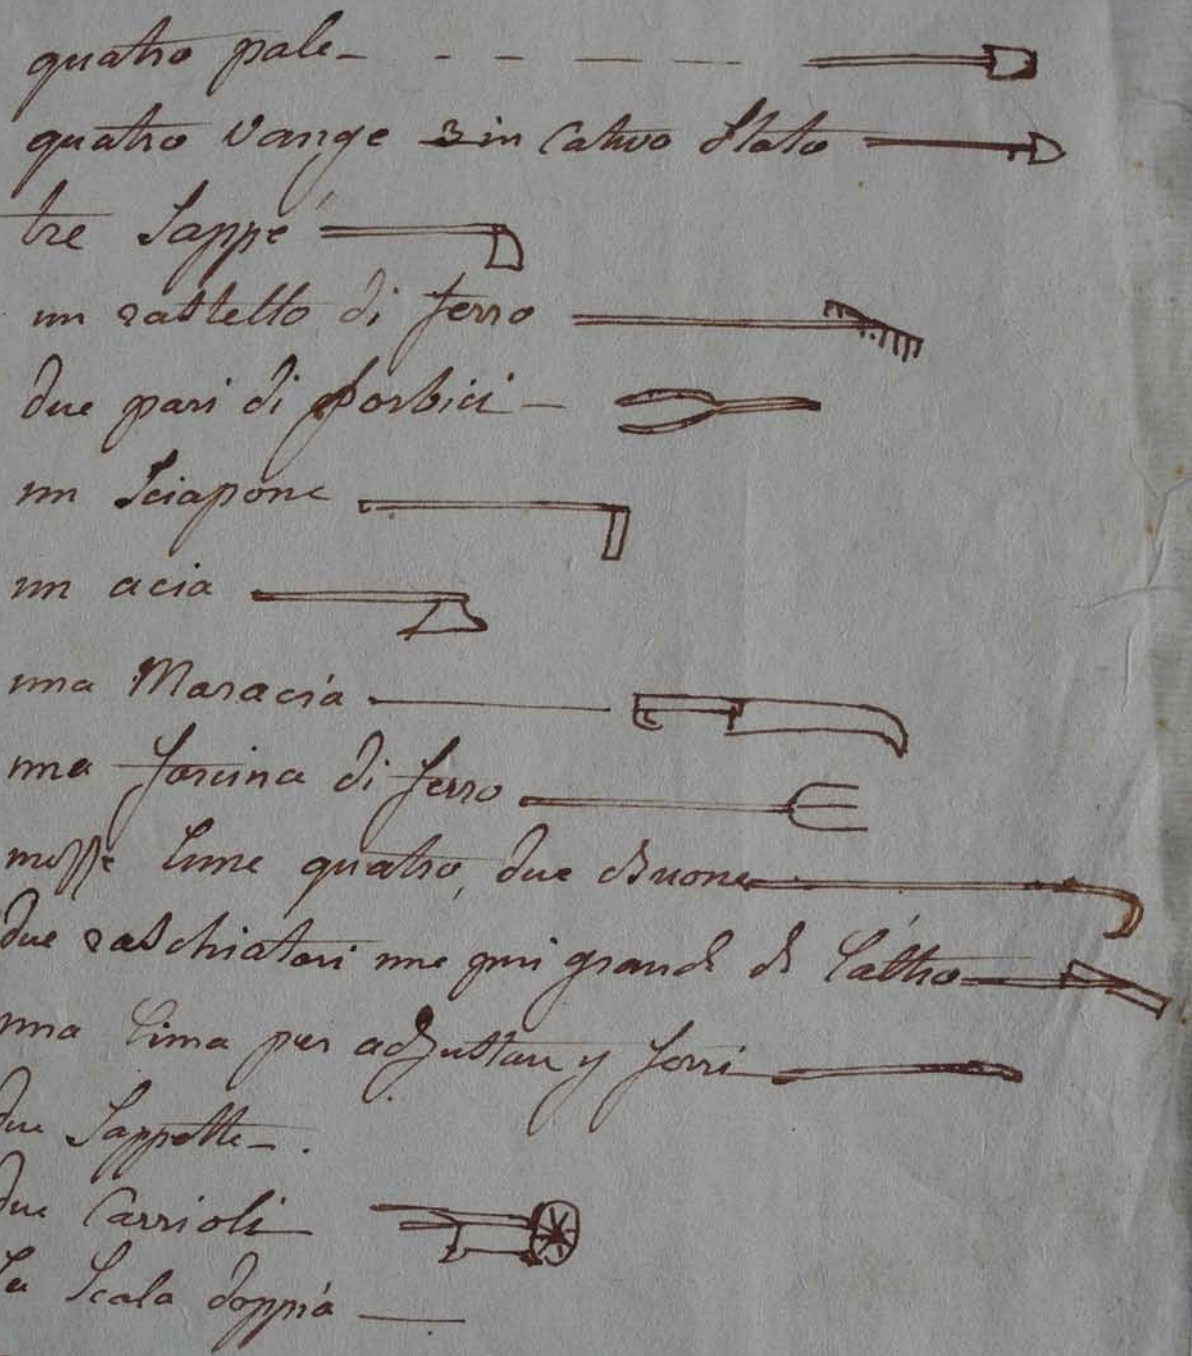 quatro pale
quatro vange 3 in Cativo Stato
tre Sappe
un rastello di ferro
due pari di forbici
un Sciapone
un acia
una Maracia
una forcina di ferro
messe lune quatro, due Buone
due raschiatori une piu grande di l'altro
una lima per adjustare y ferri
due Sappette
due Carrioli
la Scala doppia